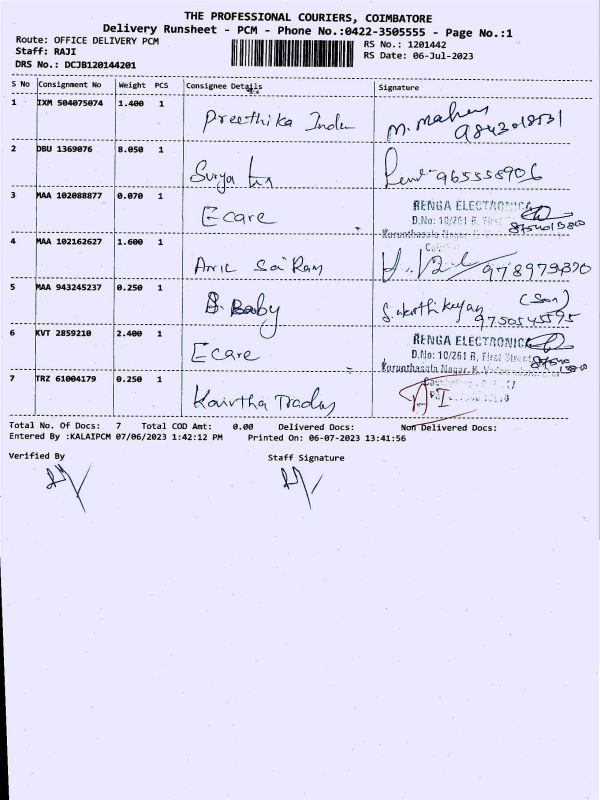 THE PROFESSIONAL COURIERS, COIMBATORE
Delivery Runsheet - PCM - Phone No.:0422-3505555 - Page No.:1
Route: OFFICE DELIVERY PCM
RS No.: 1201442
Staff: RAJI
RS Date: 06-Jul-2023
DRS No.: DCJB120144201
S No Consignment No Weight PCS Consignee Details Signature
1 IXM 504075074 1.400 1 Preethika M. Mahes
2 DBU 1369076 8.050 1 Surya 965558906
3 MAA 102088877 0.070 1 Ecare RENGA ELECTRONICA
D.No: 10/261 B, First
4 MAA 102162627 1.600 1 Anil Sai Ram
5 MAA 943245237 0.250 1 S. Baby S. Karthikeyan (Son)
9750545595
6 KVT 2859210 2.400 1 Ecare RENGA ELECTRONICA
D.No: 10/261 B, First Street
7 TRZ 61004179 0.250 1
Total No. Of Docs: 7 Total COD Amt: 0.00 Delivered Docs: Non Delivered Docs:
Entered By :KALAIPCM 07/06/2023 1:42:12 PM Printed On: 06-07-2023 13:41:56
Verified By Staff Signature